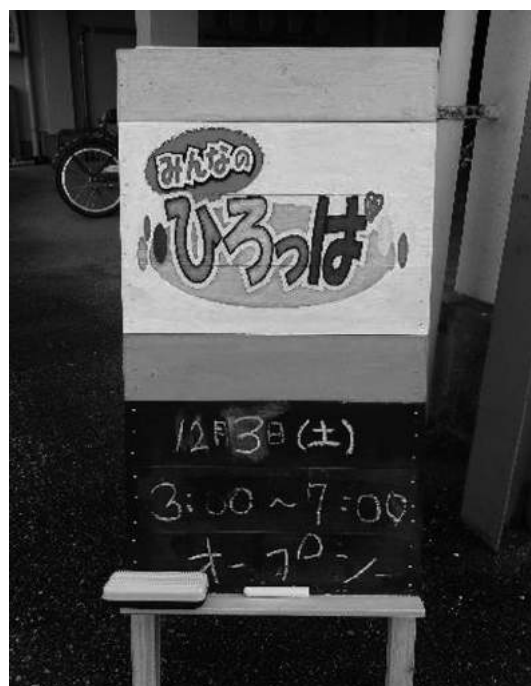 みんなの
ひろっぱ
12月3日(土)
3:00~7:00
オープン